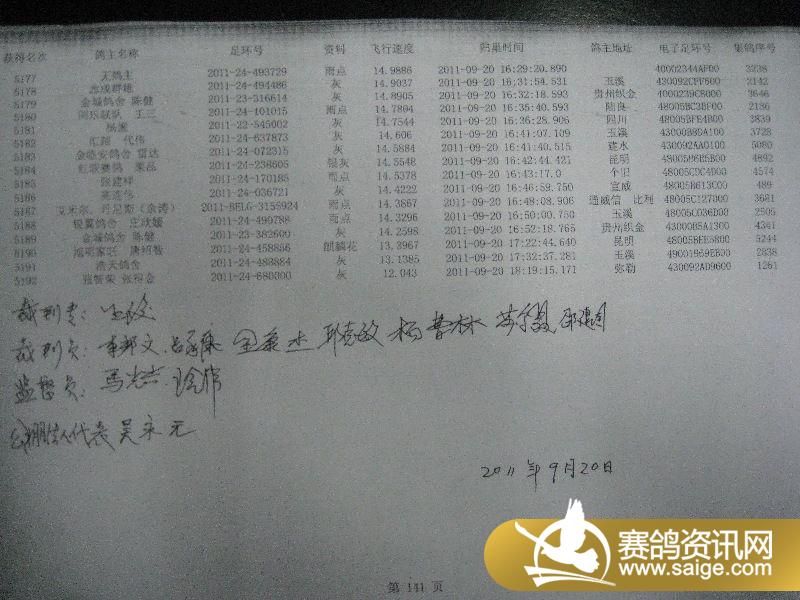 获得名次 鸽主名称 足环号 资料 飞行速度 归巢时间 鸽主地址 电子足环号 集鸽序号
5177 天鸽主 2011-24-493729 雨点 14.9886 2011-09-20 16:29:20.890 40002344AF00 3238
5178 志成群雄 2011-24-494486 灰 14.9037 2011-09-20 16:31:54.531 玉溪 430092CFF600 2142
5179 金城鸽舍 陈健 2011-23-316614 灰 14.8905 2011-09-20 16:32:18.593 贵州织金 4000239CB000 3646
5180 王三 2011-24-101015 雨点 14.7804 2011-09-20 16:35:40.593 陆良 48005BC3BF00 2186
5181 2011-22-545002 灰 14.7544 2011-09-20 16:36:28.906 四川 48005BFB4B00 3839
5182 汇翔 代伟 2011-24-637873 灰 14.606 2011-09-20 16:41:07.109 玉溪 43000B8DA100 3728
5183 金盛安鸽舍 雷达 2011-24-072315 灰 14.5884 2011-09-20 16:41:40.515 建水 430092AA0100 5080
5184 红歌赛鸽 2011-24-238605 银灰 14.5548 2011-09-20 16:42:44.421 昆明 48005B6B5B00 4892
5185 张建祥 2011-24-170185 雨点 14.5378 2011-09-20 16:43:17.0 个旧 48005CDC4D00 4574
5186 2011-24-036721 灰 14.4222 2011-09-20 16:46:59.750 宣威 48005B613C00 489
5187 艾米尔、丹尼斯(余涛) 2011-BELG-3155924 雨点 14.3867 2011-09-20 16:48:08.906 通威信 比利 48005C127800 3681
5188 银翼鸽舍 庄欣媛 2011-24-499788 雨点 14.3296 2011-09-20 16:50:00.750 玉溪 48005C036D00 2505
5189 金城鸽舍 陈健 2011-23-382600 灰 14.2598 2011-09-20 16:52:18.765 贵州织金 43000B5A1300 4341
5190 旭明家居 唐绍智 2011-24-458856 麒麟花 13.3967 2011-09-20 17:22:44.640 昆明 48005BEE5800 5244
5191 浩天鸽舍 2011-24-483884 灰 13.1385 2011-09-20 17:32:37.281 玉溪 49001969EB00 2838
5192 张智荣 张裕金 2011-24-680300 灰 12.043 2011-09-20 18:19:15.171 弥勒 430092AD9600 1261
裁判长:
裁判员: 李邦文 杨普林
监督员:
代表 吴永元
2011年9月20日
第 141 页
赛鸽资讯网
www.saige.com